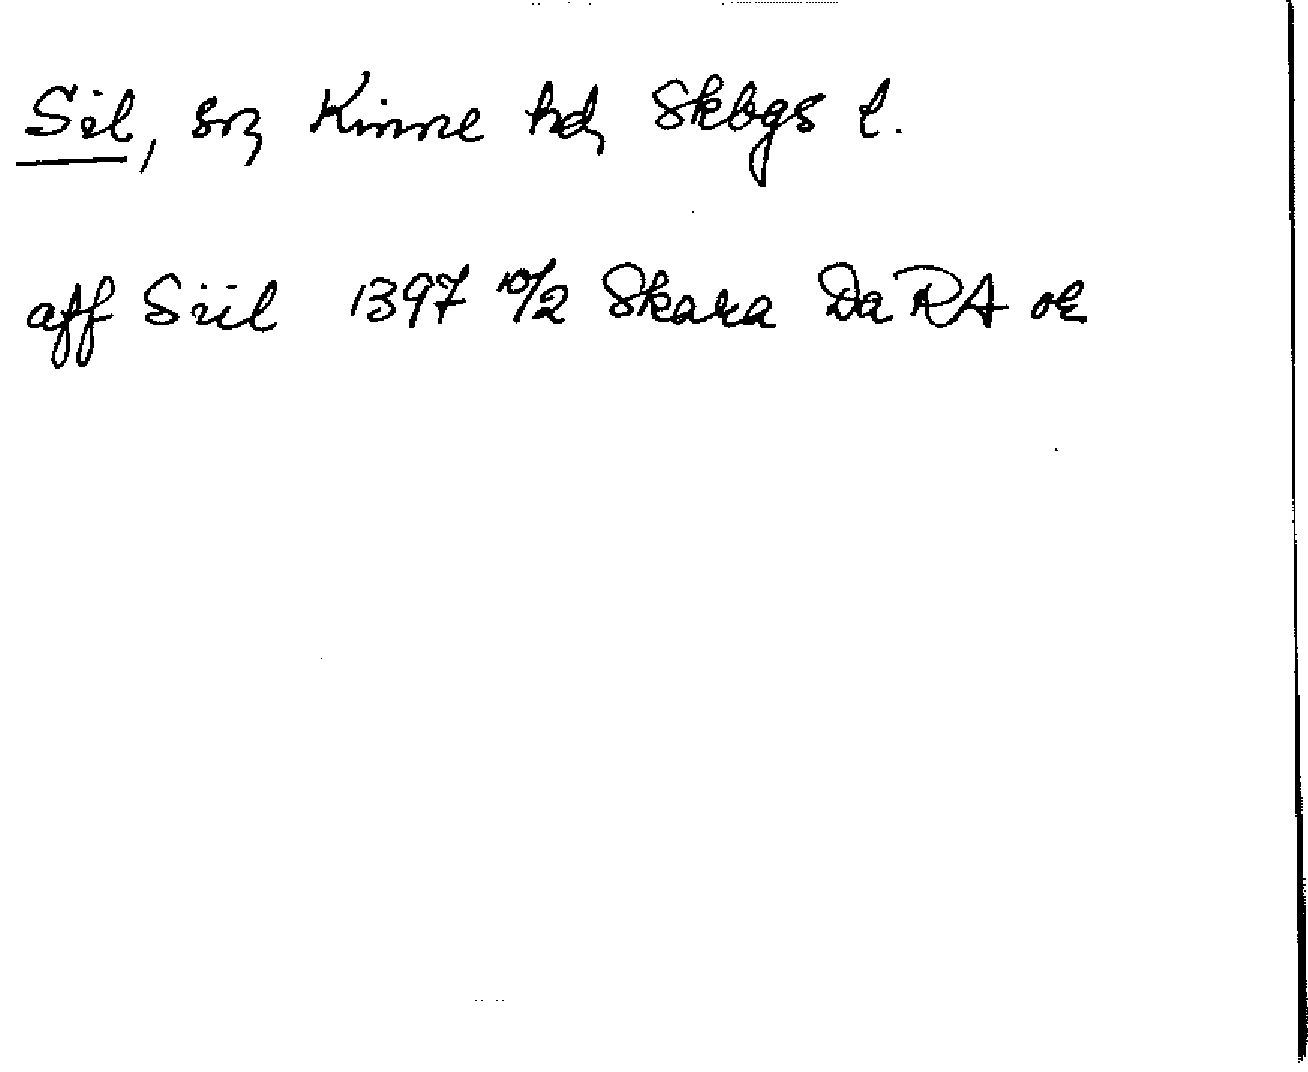 Sil, sn, Kinne hd, Skbgs l.
aff Siil 1397 10/2 Skara Da RA or